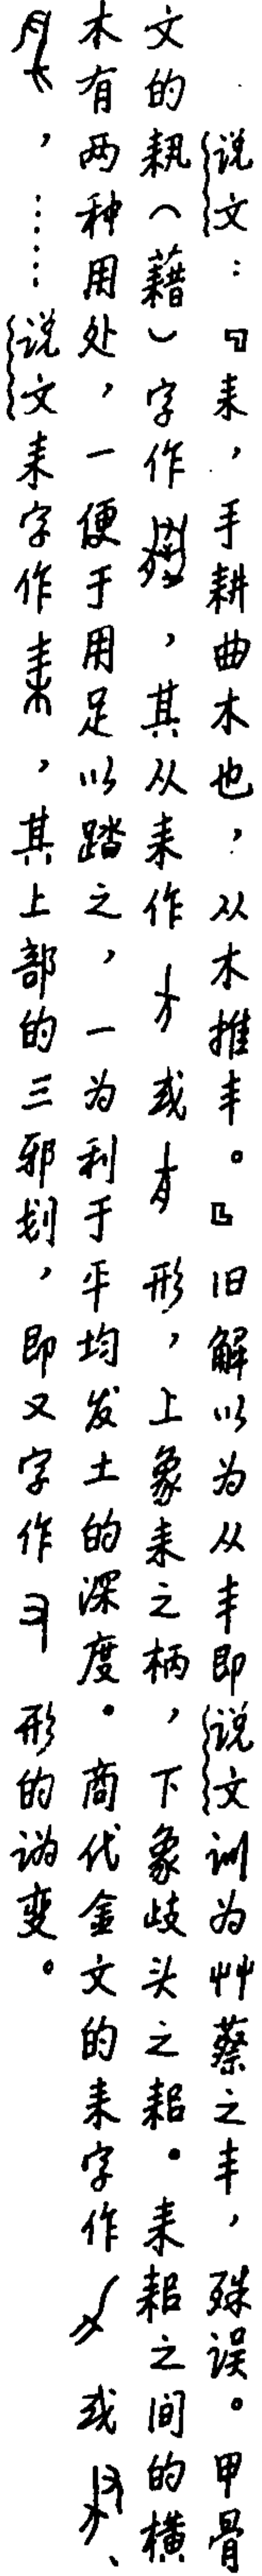 说文：『耒，手耕曲木也，从木推丰。』旧解以为从丰即说文训为艸蔡之丰，殊误。甲骨
文的耤（藉）字作，其从耒作或形，上象耒之柄，下象歧头之耜。耒耜之间的横
木有两种用处，一便于用足以踏之，一为利于平均发土的深度。商代金文的耒字作或、
，……说文耒字作，其上部的三邪划，即又字作形的讹变。